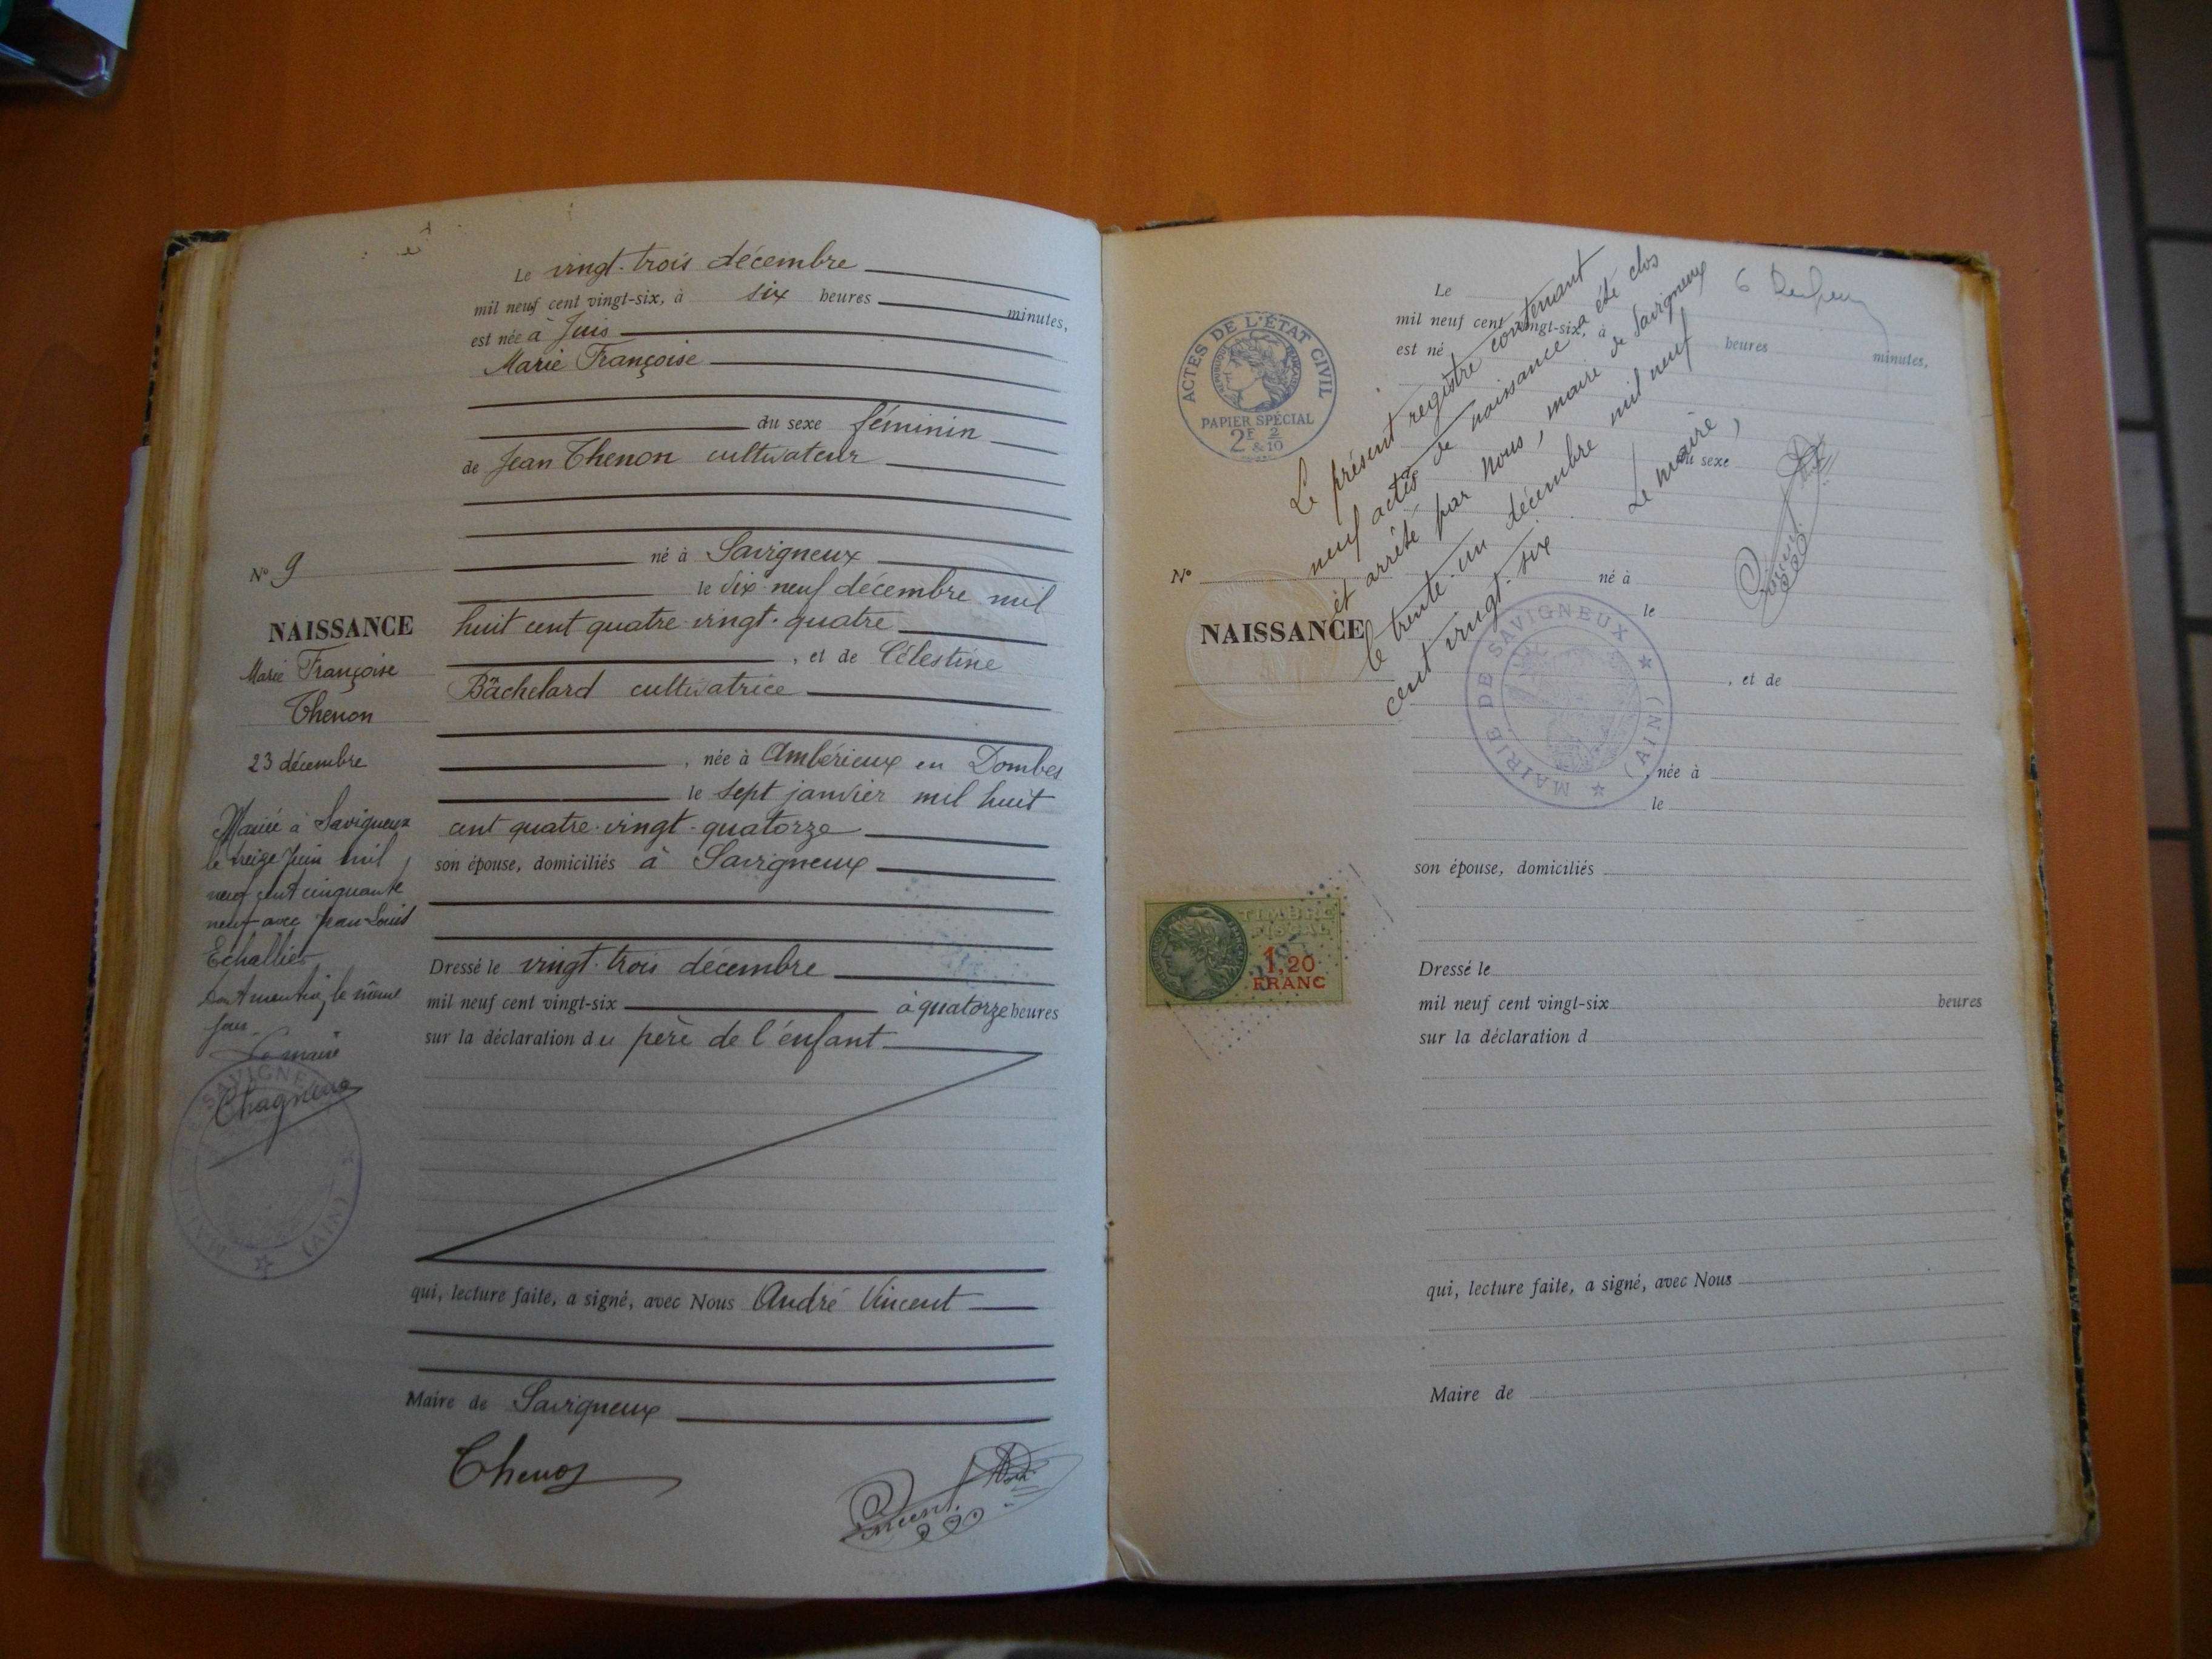 Le vingt-trois décembre
mil neuf cent vingt-six, à six heures
minutes,
est née à Juis
Marie Françoise
du sexe féminin
de Jean Thenon cultivateur
né à Savigneux
le dix-neuf décembre mil
huit cent quatre-vingt-quatre
, et de Célestine
Bächelard cultivatrice
, née à Ambérieux en Dombes
le sept janvier mil huit
cent quatre-vingt-quatorze
son épouse, domiciliés à Savigneux
Dressé le vingt-trois décembre
mil neuf cent vingt-six à quatorze heures
sur la déclaration du père de l'enfant
qui, lecture faite, a signé, avec Nous André Vincent
Maire de Savigneux
Thenon
Vincent
N° 9
NAISSANCE
Marie Françoise
Thenon
23 décembre
Mariée à Savigneux
le treize Juin mil
neuf cent cinquante
neuf avec Jean-Louis
Echallier
le même
jour
Le maire
Chagneux
SAVIGNE
(AIN)
ACTES DE L'ÉTAT CIVIL
PAPIER SPÉCIAL
2F 2
& 10
Le présent registre contenant
neuf actes de naissance a été clos
et arrêté par nous, maire de Savigneux
le trente-un décembre mil neuf
cent vingt-six
Le maire,
Vincent
Le
mil neuf cent vingt-six, à heures minutes,
est né
du sexe
N°
né à
NAISSANCE
le
MAIRIE DE SAVIGNEUX
(AIN)
, et de
, née à
le
son épouse, domiciliés
TIMBRE
FISCAL
1,20
FRANC
Dressé le
mil neuf cent vingt-six heures
sur la déclaration d
qui, lecture faite, a signé, avec Nous
Maire de